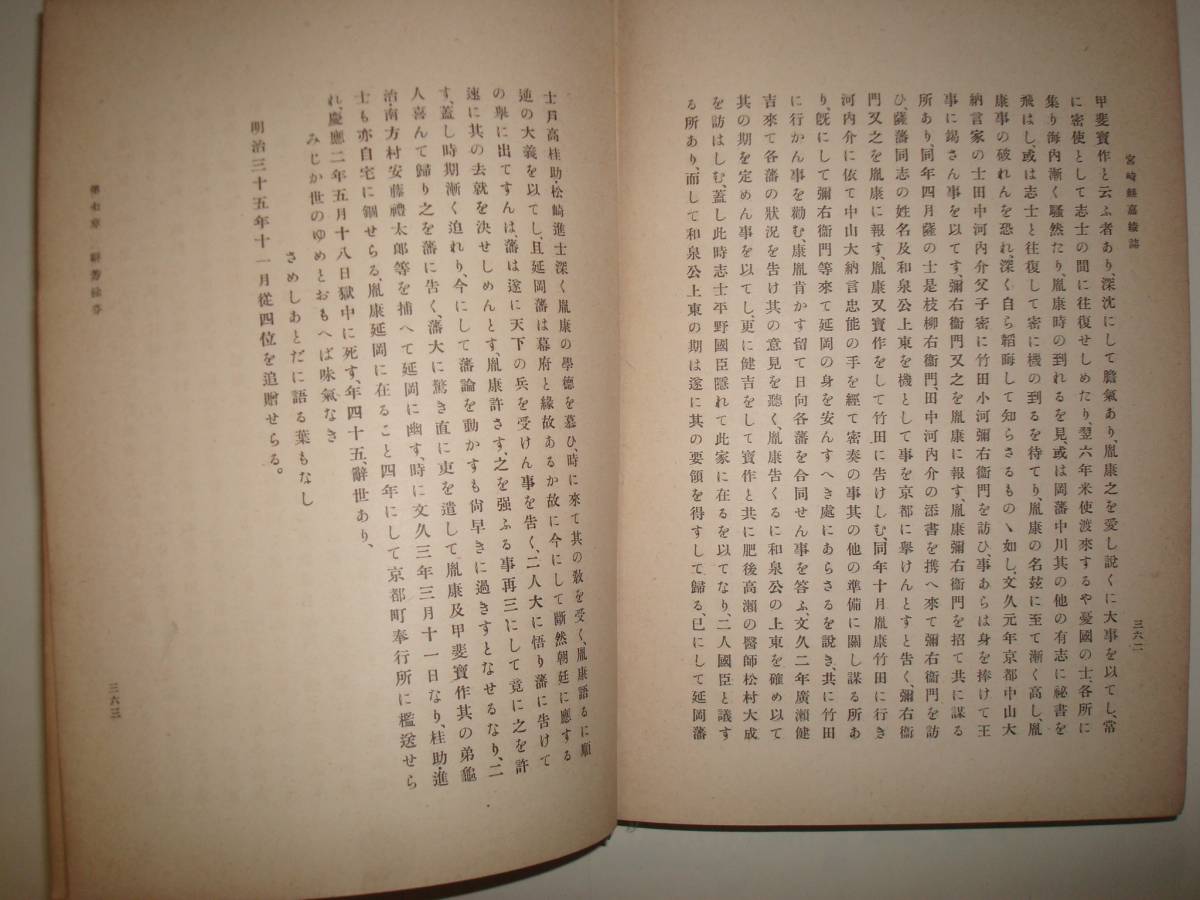 宮崎縣嘉績誌
三六二
甲斐寶作と云ふ者あり、深沈にして膽氣あり、胤康之を愛し說くに大事を以てし、常
に密使として志士の間に往復せしめたり、翌六年米使渡來するや憂國の士、各所に
集り海內漸く騷然たり、胤康時の到れるを見、或は岡藩中川其の他の有志に祕書を
飛はし、或は志士と往復して密に機の到るを待てり、胤康の名玆に至て漸く高し、胤
康事の破れんを恐れ、深く自ら韜晦して知らさるものゝ如し、文久元年京都中山大
納言家の士田中河內介父子密に竹田小河彌右衞門を訪ひ、事あらは身を捧けて王
事に竭さん事を以てす、彌右衞門又之を胤康に報す、胤康彌右衞門を招て共に謀る
所あり、同年四月薩の士是枝柳右衞門、田中河內介の添書を携へ來て彌右衞門を訪
ひ、薩藩同志の姓名及和泉公上東を機として事を京都に擧けんとすと告く、彌右衞
門又之を胤康に報す、胤康又寶作をして竹田に告けしむ、同年十月胤康竹田に行き
河內介に依て中山大納言忠能の手を經て密奏の事其の他の準備に關し謀る所あ
り、旣にして彌右衞門等來て延岡の身を安んすへき處にあらさるを說き、共に竹田
に行かん事を勸む、康胤肯かす留て日向各藩を合同せん事を答ふ、文久二年廣瀨健
吉來て各藩の狀況を告け其の意見を聽く、胤康告くるに和泉公の上東を確め以て
其の期を定めん事を以てし、更に健吉をして寶作と共に肥後高瀨の醫師松村大成
を訪はしむ、蓋し此時志士平野國臣隱れて此家に在るを以てなり、二人國臣と議す
る所あり、而して和泉公上東の期は遂に其の要領を得すして歸る、已にして延岡藩
士戶高桂助・松崎進士深く胤康の學德を慕ひ、時に來て其の敎を受く、胤康語るに順
逆の大義を以てし、且延岡藩は幕府と緣故あるか故に今にして斷然朝廷に應する
の擧に出てすんは、藩は遂に天下の兵を受けん事を告く、二人大に悟り藩に告けて
速に其の去就を決せしめんとす、胤康許さす、之を强ふる事再三にして竟に之を許
す、蓋し時期漸く迫れり、今にして藩論を動かすも尙早きに過きすとなせるなり、二
人喜んて歸り之を藩に告く、藩大に驚き直に吏を遣して、胤康及甲斐寶作其の弟龜
治・南方村安藤禮太郎等を捕へて延岡に幽す、時に文久三年三月十一日なり、桂助・進
士も亦自宅に錮せらる、胤康延岡に在ること四年にして京都町奉行所に檻送せら
れ、慶應二年五月十八日獄中に死す、年四十五、辭世あり、
みじか世のゆめとおもへば味氣なき
さめしあとだに語る葉もなし
明治三十五年十一月從四位を追贈せらる。
三六三